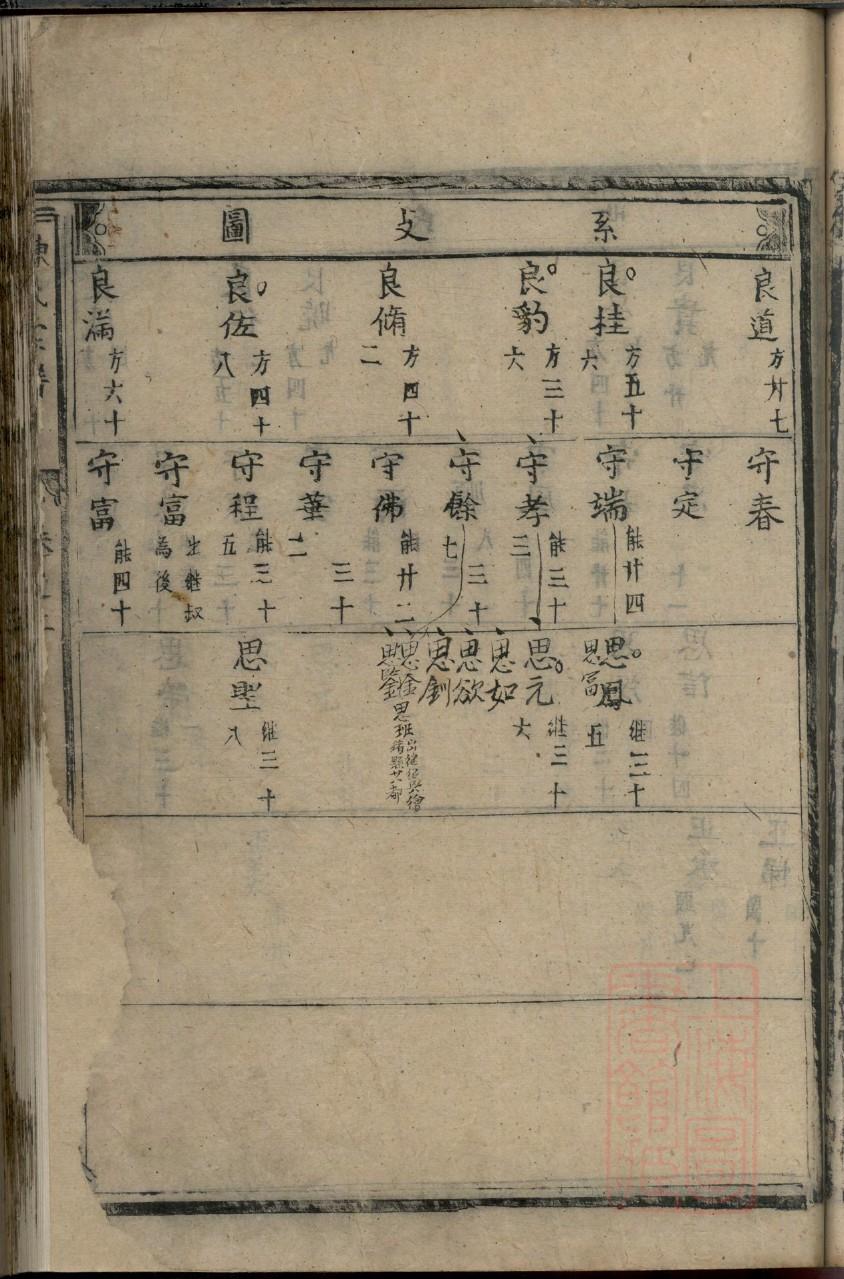 系支圖
良道 方廿七
良桂 方五十六
良豹 方三十六
良脩 方四十二
良佐 方四十八
良滿 方六十
守春
守定
守端 能廿四
守孝 能三十三
守餘 三十七
守佛 能廿二
守華 三十二
守程 能三十五
守富 出繼叔為後
守富 能四十
思鳳 継三十五
思富
思元 継三十六
思如
思欲
思釗
思金
思鑒
思班
思聖 継三十八